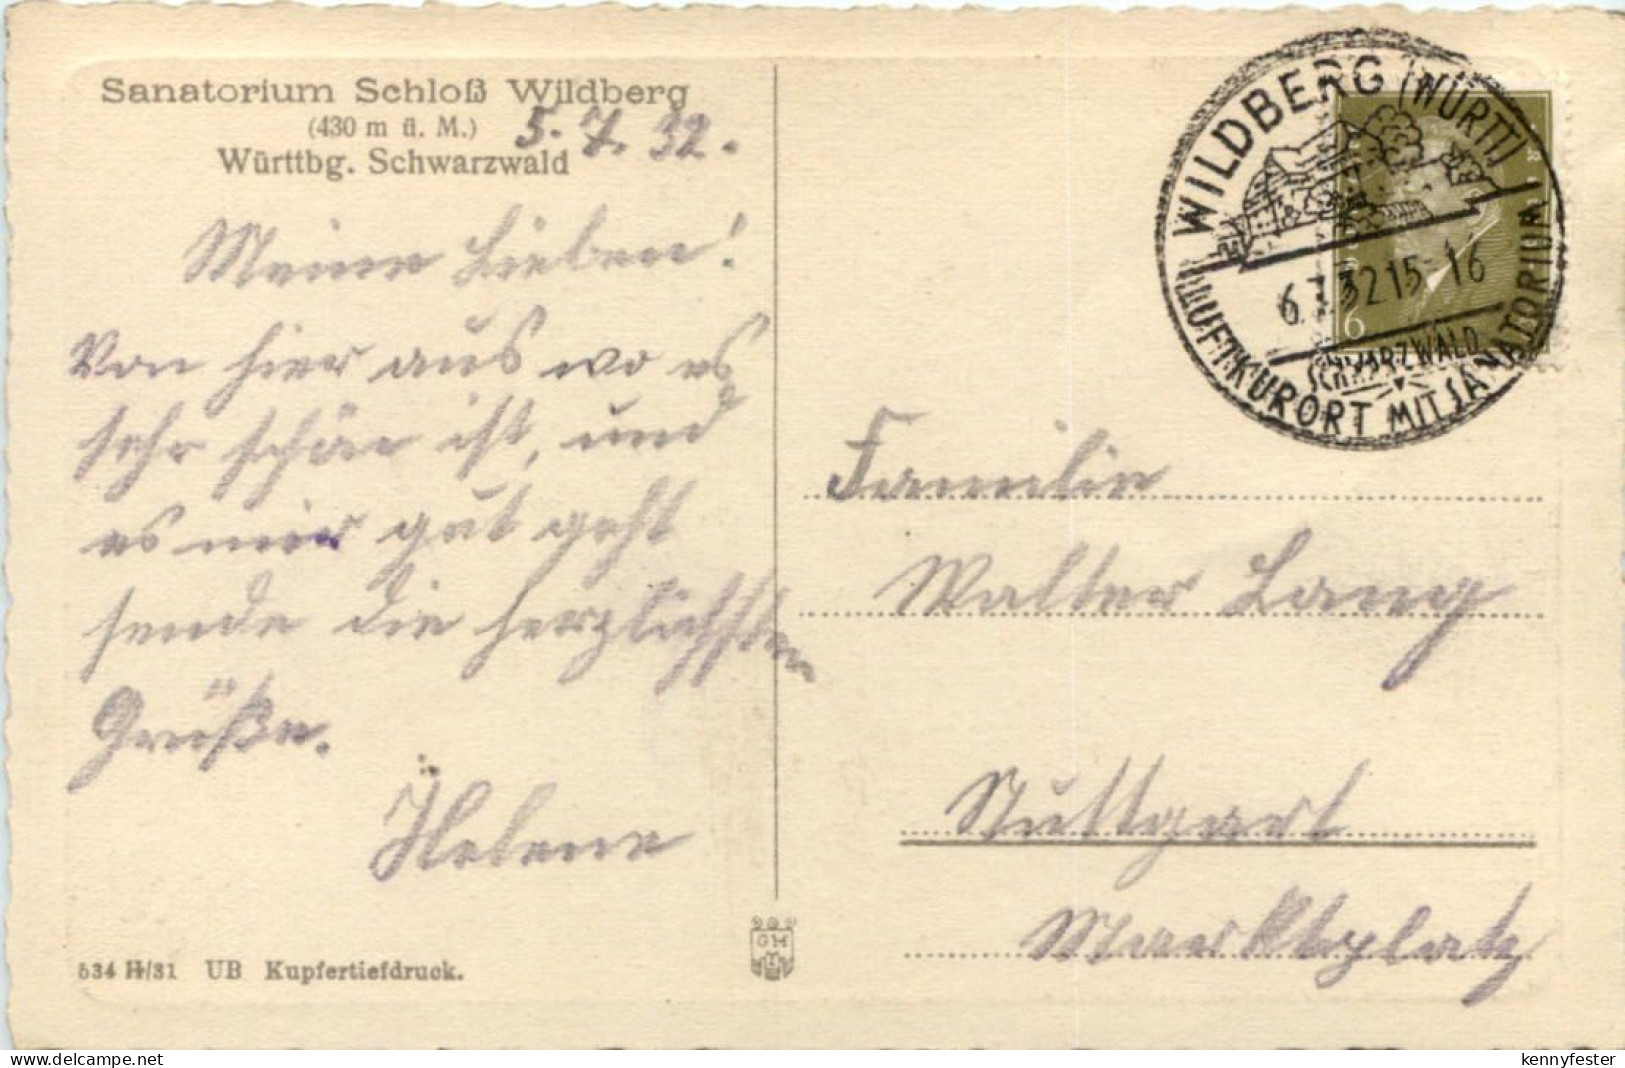 Sanatorium Schloß Wildberg
(430 m ü. M.)
Württbg. Schwarzwald
5. 7. 32.
Meine Lieben!
Von hier aus wo es
sehr schön ist, und
es mir gut geht
sende die herzlichsten
Grüße.
Helene
534 H/31 UB Kupfertiefdruck.
GHM
WILDBERG (WÜRTT)
6.7.32 15-16
SCHWARZWALD
LUFTKURORT MIT SANATORIUM
6
Familie
Walter Lang
Stuttgart
Marktplatz
delcampe.net
kennyfester